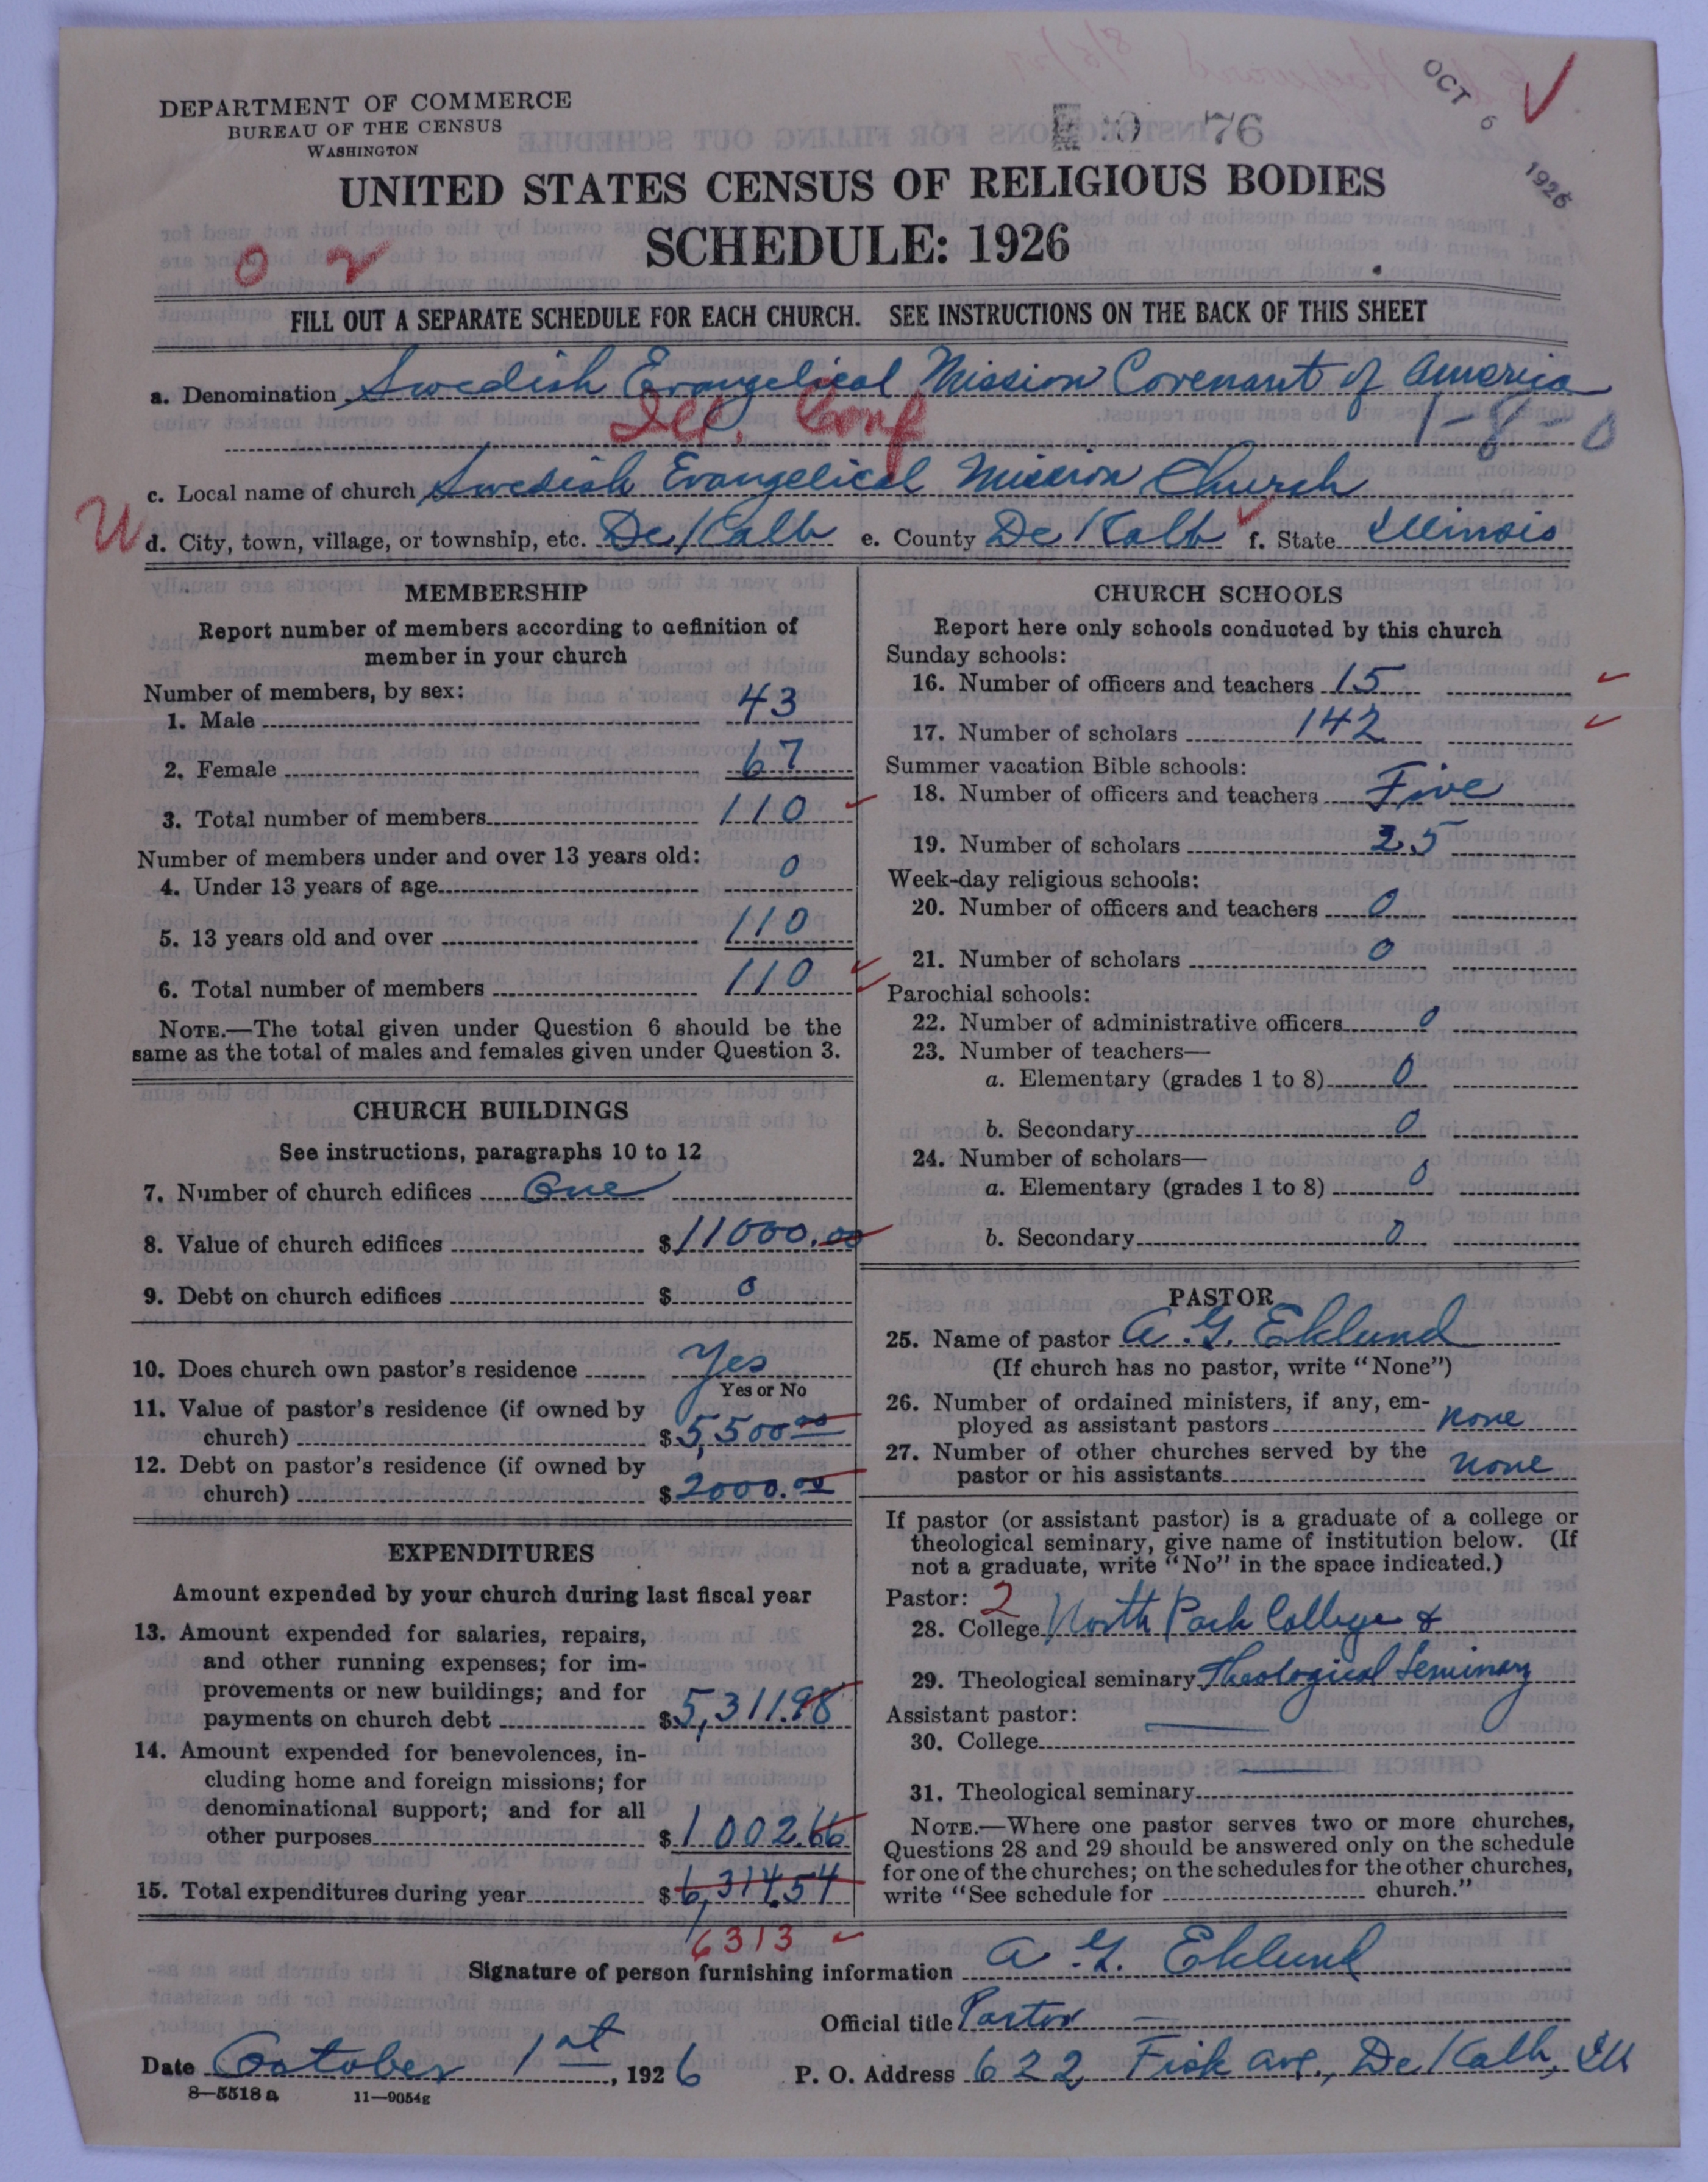 OCT 6 1926
DEPARTMENT OF COMMERCE
BUREAU OF THE CENSUS
WASHINGTON
76
UNITED STATES CENSUS OF RELIGIOUS BODIES
SCHEDULE: 1926
0 2
FILL OUT A SEPARATE SCHEDULE FOR EACH CHURCH. SEE INSTRUCTIONS ON THE BACK OF THIS SHEET
a. Denomination Swedish Evangelical Mission Covenant of America
Ill. Conf 1-8-0
c. Local name of church Swedish Evangelical Mission Church
W
d. City, town, village, or township, etc. De Kalb e. County De Kalb f. State Illinois
MEMBERSHIP
Report number of members according to definition of
member in your church
Number of members, by sex:
1. Male 43
2. Female 67
3. Total number of members 110
Number of members under and over 13 years old:
4. Under 13 years of age 0
5. 13 years old and over 110
6. Total number of members 110
NOTE.—The total given under Question 6 should be the
same as the total of males and females given under Question 3.
CHURCH BUILDINGS
See instructions, paragraphs 10 to 12
7. Number of church edifices One
8. Value of church edifices $11000.00
9. Debt on church edifices $ 0
10. Does church own pastor's residence Yes
Yes or No
11. Value of pastor's residence (if owned by
church) $5,500.00
12. Debt on pastor's residence (if owned by
church) $2000.00
EXPENDITURES
Amount expended by your church during last fiscal year
13. Amount expended for salaries, repairs,
and other running expenses; for im-
provements or new buildings; and for
payments on church debt $5,311.98
14. Amount expended for benevolences, in-
cluding home and foreign missions; for
denominational support; and for all
other purposes $1,002.66
15. Total expenditures during year $6,314.54
6313
CHURCH SCHOOLS
Report here only schools conducted by this church
Sunday schools:
16. Number of officers and teachers 15
17. Number of scholars 142
Summer vacation Bible schools:
18. Number of officers and teachers Five
19. Number of scholars 25
Week-day religious schools:
20. Number of officers and teachers 0
21. Number of scholars 0
Parochial schools:
22. Number of administrative officers 0
23. Number of teachers—
a. Elementary (grades 1 to 8) 0
b. Secondary 0
24. Number of scholars—
a. Elementary (grades 1 to 8) 0
b. Secondary 0
PASTOR
25. Name of pastor A. G. Eklund
(If church has no pastor, write "None")
26. Number of ordained ministers, if any, em-
ployed as assistant pastors None
27. Number of other churches served by the
pastor or his assistants None
If pastor (or assistant pastor) is a graduate of a college or
theological seminary, give name of institution below. (If
not a graduate, write "No" in the space indicated.)
Pastor: 2
28. College North Park College &
29. Theological seminary Theological Seminary
Assistant pastor:
30. College
31. Theological seminary
NOTE.—Where one pastor serves two or more churches,
Questions 28 and 29 should be answered only on the schedule
for one of the churches; on the schedules for the other churches,
write "See schedule for church."
Signature of person furnishing information A. G. Eklund
Official title Pastor
Date October 1st, 1926 P. O. Address 622 Fisk Ave., De Kalb, Ill
8—5518a 11—9054g